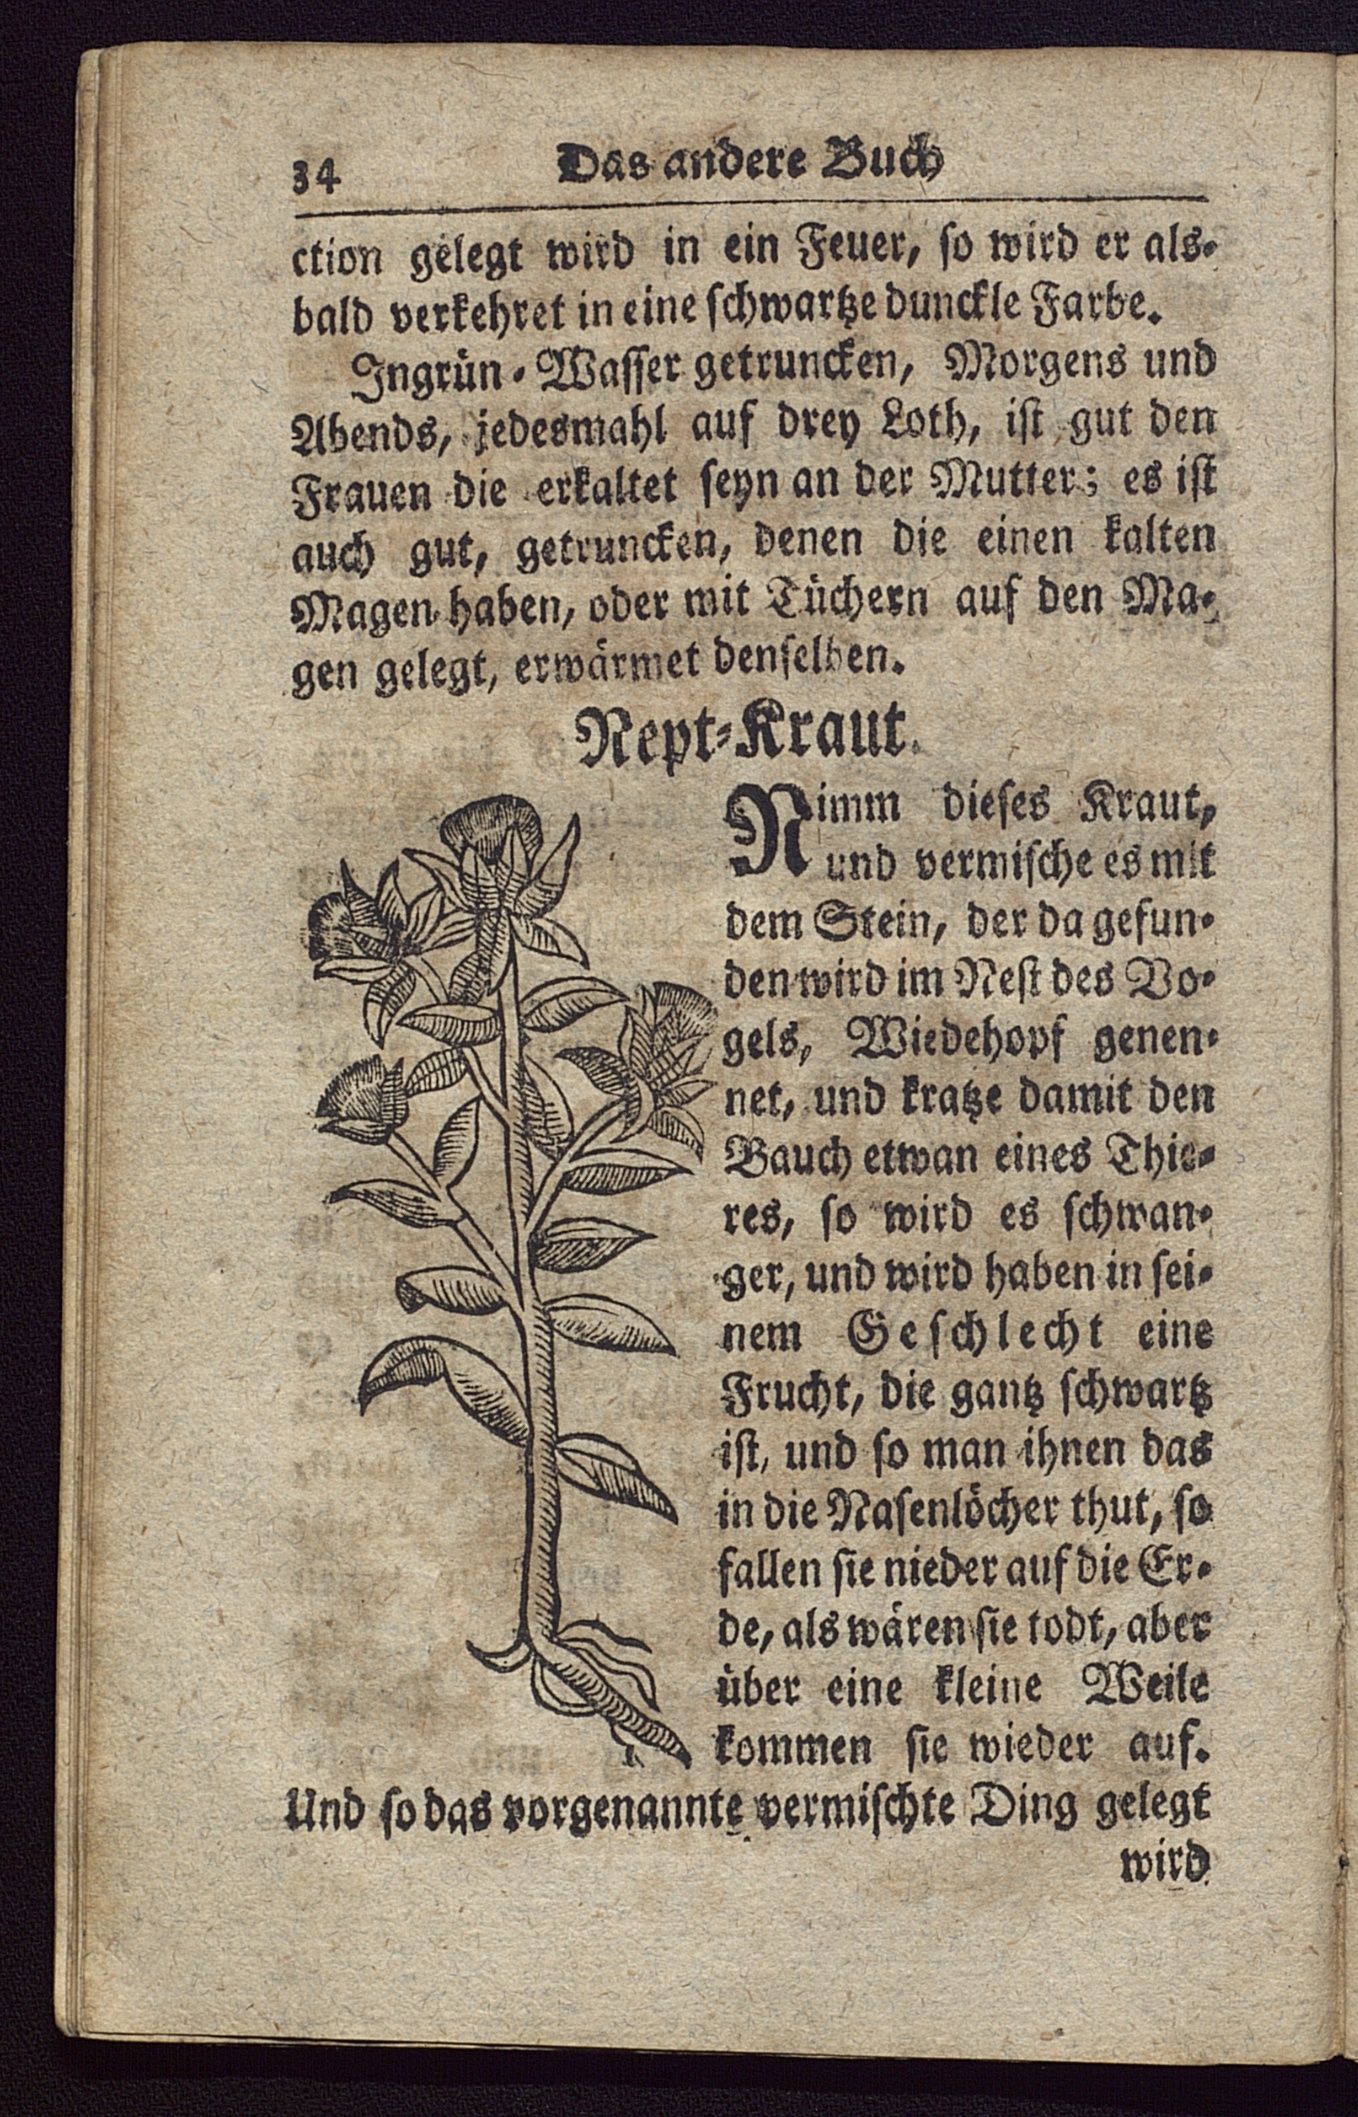 34 Das andere Buch
ction gelegt wird in ein Feuer, ſo wird er als-
bald verkehret in eine ſchwartze dunckle Farbe.
Ingrün-Waſſer getruncken, Morgens und
Abends, jedesmahl auf drey Loth, iſt gut den
Frauen die erkaltet ſeyn an der Mutter; es iſt
auch gut, getruncken, denen die einen kalten
Magen haben, oder mit Tüchern auf den Ma-
gen gelegt, erwärmet denſelben.
Nept-Kraut.
Nimm dieſes Kraut,
und vermiſche es mit
dem Stein, der da gefun-
den wird im Neſt des Vo-
gels, Wiedehopf genen-
net, und kratze damit den
Bauch etwan eines Thie-
res, ſo wird es ſchwan-
ger, und wird haben in ſei-
nem Geſchlecht eine
Frucht, die gantz ſchwartz
iſt, und ſo man ihnen das
in die Naſenlöcher thut, ſo
fallen ſie nieder auf die Er-
de, als wären ſie todt, aber
über eine kleine Weile
kommen ſie wieder auf.
Und ſo das vorgenannte vermiſchte Ding gelegt
wird